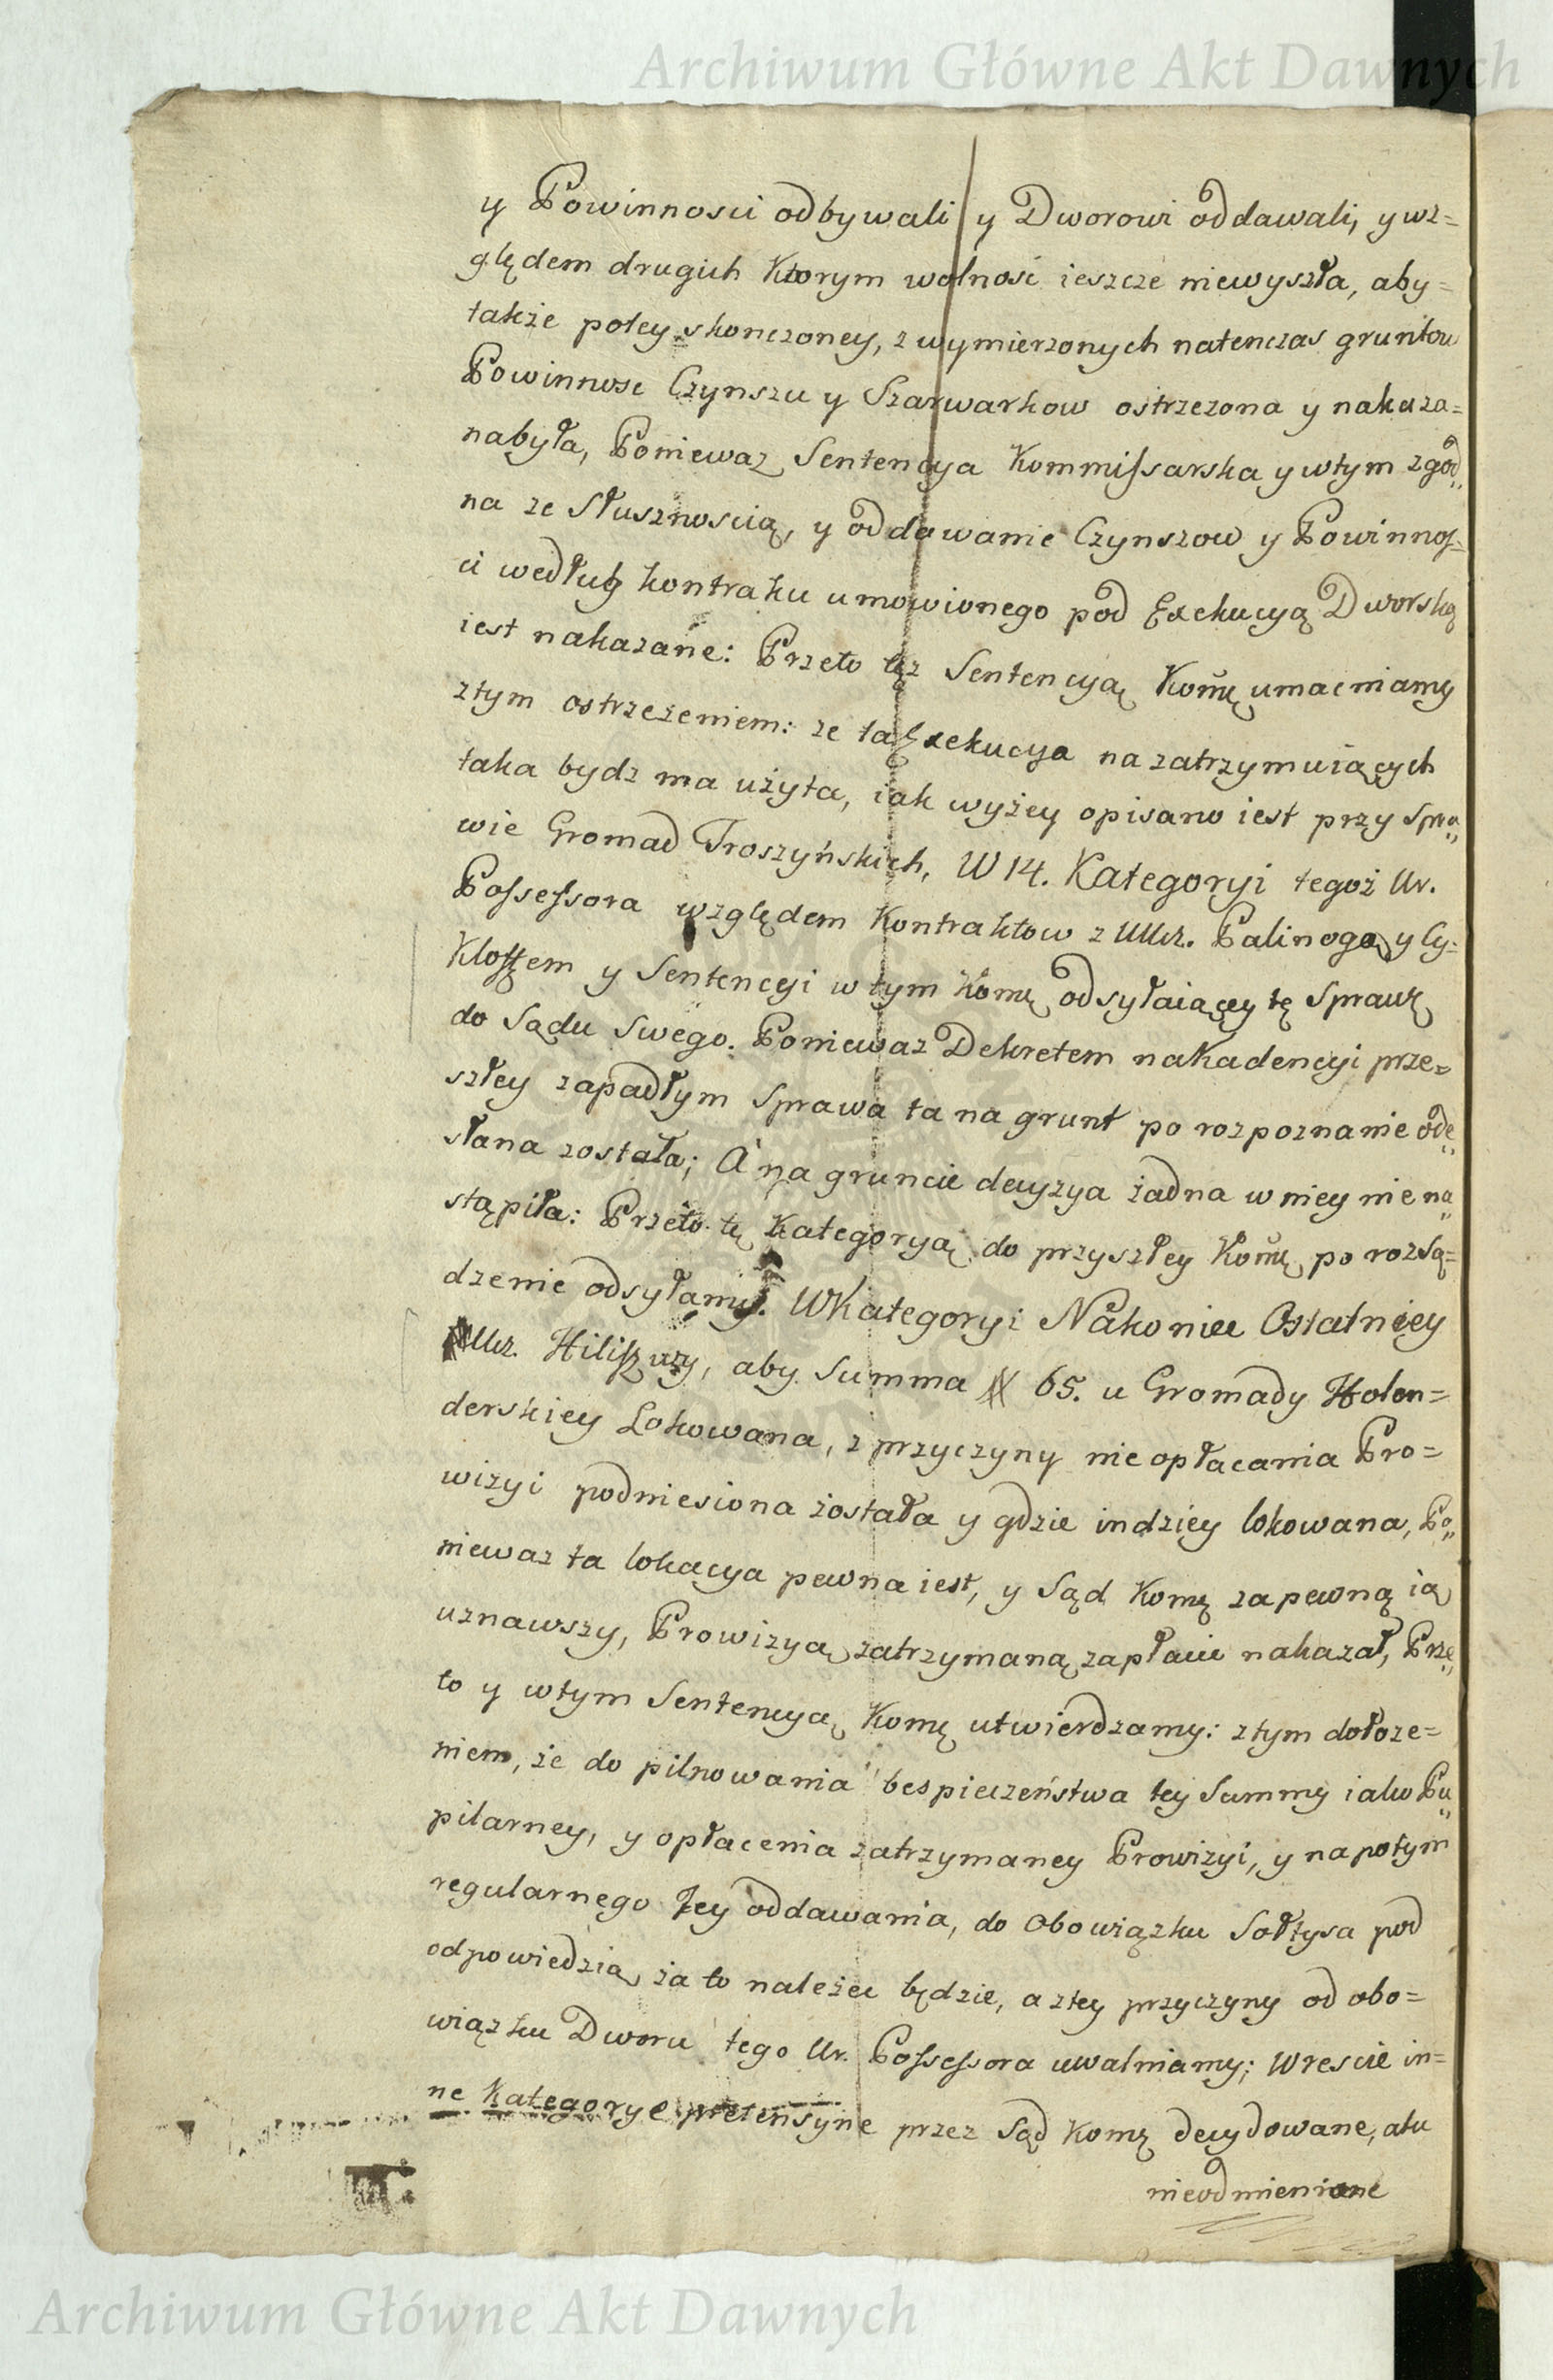 Archiwum Główne Akt Dawnych
y Powinnosci odbywali y Dworowi oddawali, y wz=
ględem drugich Ktorym wolnosć ieszcze niewyszła, aby=
także potey skonczoney, z wymierzonych natenczas gruntow
Powinnosc Czynszu y Szarwarkow ostrzezona y nakaza=
nabyła, Poniewaz Sentencya Kommissarska y wtym zgod„
na ze Słusznoscią, y oddawanie Czynszow y Powinnoś=
ci według kontraku umowionego pod Exekucyą Dworską
iest nakazane: Przeto tęz Sentencyą Komę umacniamy
ztym ostrzezeniem: ze ta Exekucya na zatrzymuiących
taka bydz ma użyta, iak wyżey opisano iest przy Spra„
wie Gromad Troszyńskich, W 14. Kategoryi tegoż Ur.
Possessora względem Kontraktow z UUr. Palinogą y Cy=
Kloffem y Sentencyi w tym Komę odsyłaiącey tę Sprawę
do Sądu Swego. Poniewaz Dekretem na Kadencyi prze=
szłey zapadłym Sprawa ta na grunt po rozpoznanie ode„
słana została; A na gruncie decyzya żadna w niey nie na„
stąpiła: Przeto tę Kategoryą do przyszłey Komę po rozsą=
dzenie odsyłamy. W Kategoryi Nakoniec Ostatniey
UUr. aby Summa # 65. u Gromady Holen=
derskiey Lokowana, z przyczyny nie opłacania Pro=
wizyi podniesiona została y gdzie indziey lokowana, Po„
niewaz ta lokacya pewna iest, y Sąd Komę za pewną ią
uznawszy, Prowizyą zatrzymaną zapłacić nakazał, Prze„
to y wtym Sentencyą Komę utwierdzamy: ztym dołoze=
niem, że do pilnowania bespieczeństwa tey Summy iako Pu„
pilarney, y opłacenia zatrzymaney Prowizyi, y napotym
regularnego Jey oddawania, do Obowiązku Sołtysa pod
odpowiedzią za to należec będzie, a ztey przyczyny od obo=
wiązku Dworu tego Ur. Possessora uwalniamy; Wrescie in=
ne Kategorye pretensyine przez Sąd Komę decydowane, atu
nieodmienione
Archiwum Główne Akt Dawnych